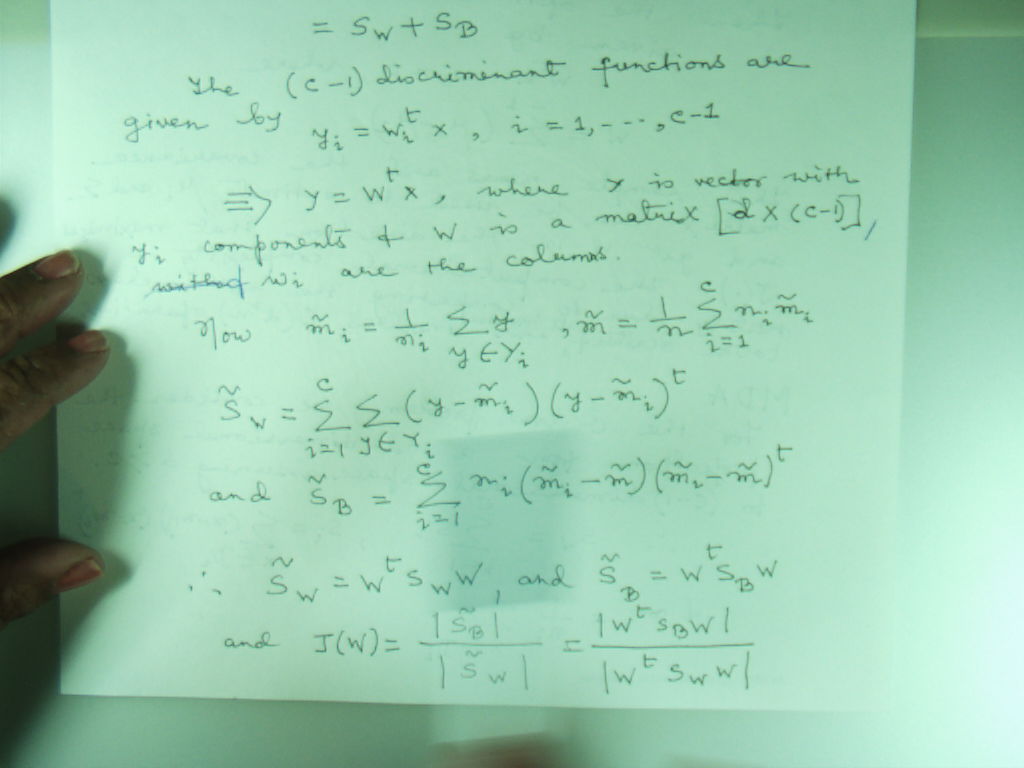 = S_W + S_B
The (c-1) discriminant functions are
given by y_i = w_i^t x , i = 1, - - - , c-1
⇒ y = W^t x , where y is vector with
y_i components & W is a matrix [d x (c-1)],
w_i are the columns.
Now m̃_i = 1/n_i Σ_{y ∈ Y_i} y , m̃ = 1/n Σ_{i=1}^{c} n_i m̃_i
S̃_W = Σ_{i=1}^{c} Σ_{y ∈ Y_i} (y - m̃_i) (y - m̃_i)^t
and S̃_B = Σ_{i=1}^{c} n_i (m̃_i - m̃) (m̃_i - m̃)^t
∴ S̃_W = W^t S_W W, and S̃_B = W^t S_B W
and J(W) = |S̃_B| / |S̃_W| = |W^t S_B W| / |W^t S_W W|